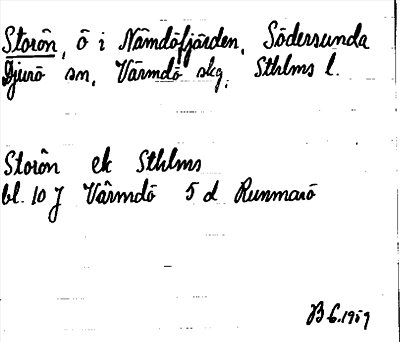 Storön, ö i Nämdöfjärden, Södersunda
Djurö sn, Värmdö skg, Sthlms l.
Storön ek Sthlms
bl. 10 J Värmdö 5 d Runmarö
B 6.1959